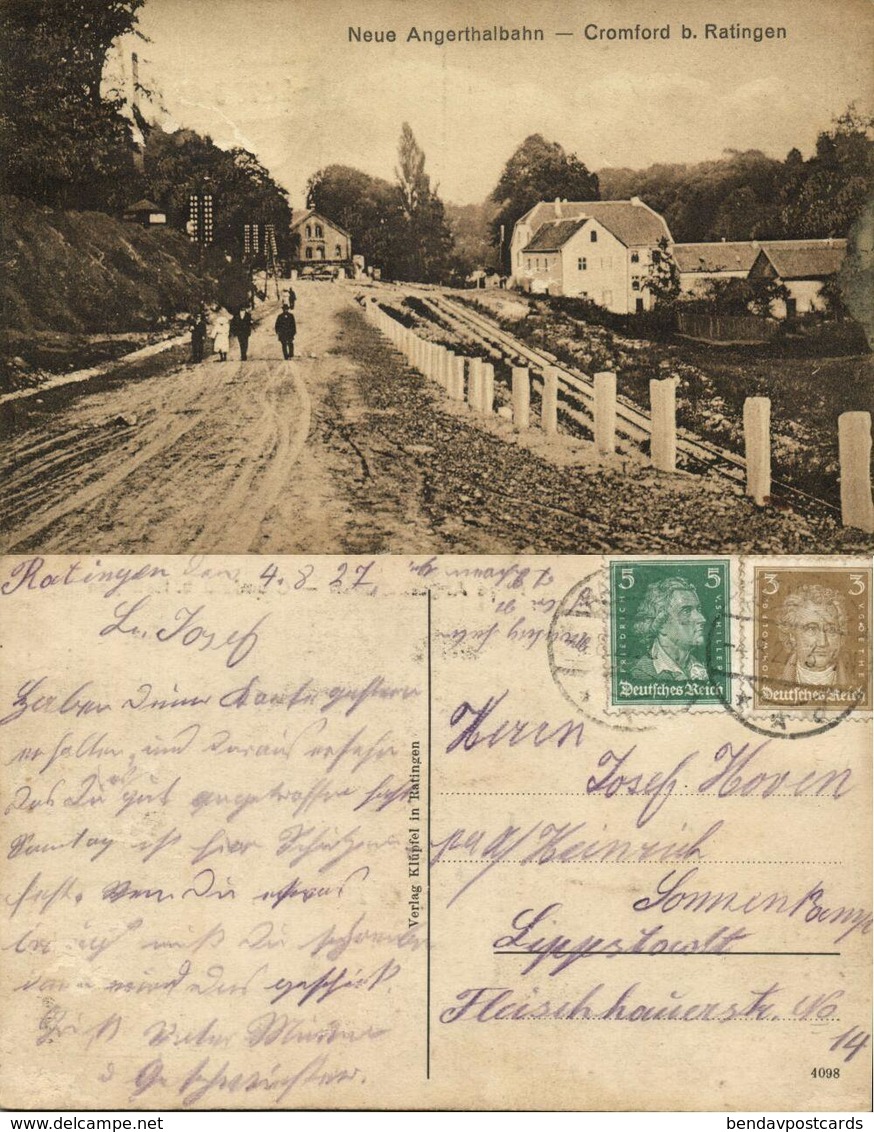 Neue Angerthalbahn — Cromford b. Ratingen
Ratingen den 4.8.27.
Lr. Josef
Haben Deine Karte gestern
erhalten, und daraus ersehn
das Du es gut angetroffen hast
Sonntag ist hier Schützen
fest. Wen Du etwas
brauchst mußt Du schreiben
dann wird das geschikt.
Gruß Vater Mutter
u Geschwister.
Verlag Klüpfel in Ratingen
5 5
FRIEDRICH V. SCHILLER
Deutsches Reich
3 3
WOLFG. V. GOETHE
Deutsches Reich
Herrn
Josef Hoven
Heinrich
Sonnenkamp
Lippstadt
Fleischhauerstr. No
14
4098
www.delcampe.net
bendavpostcards